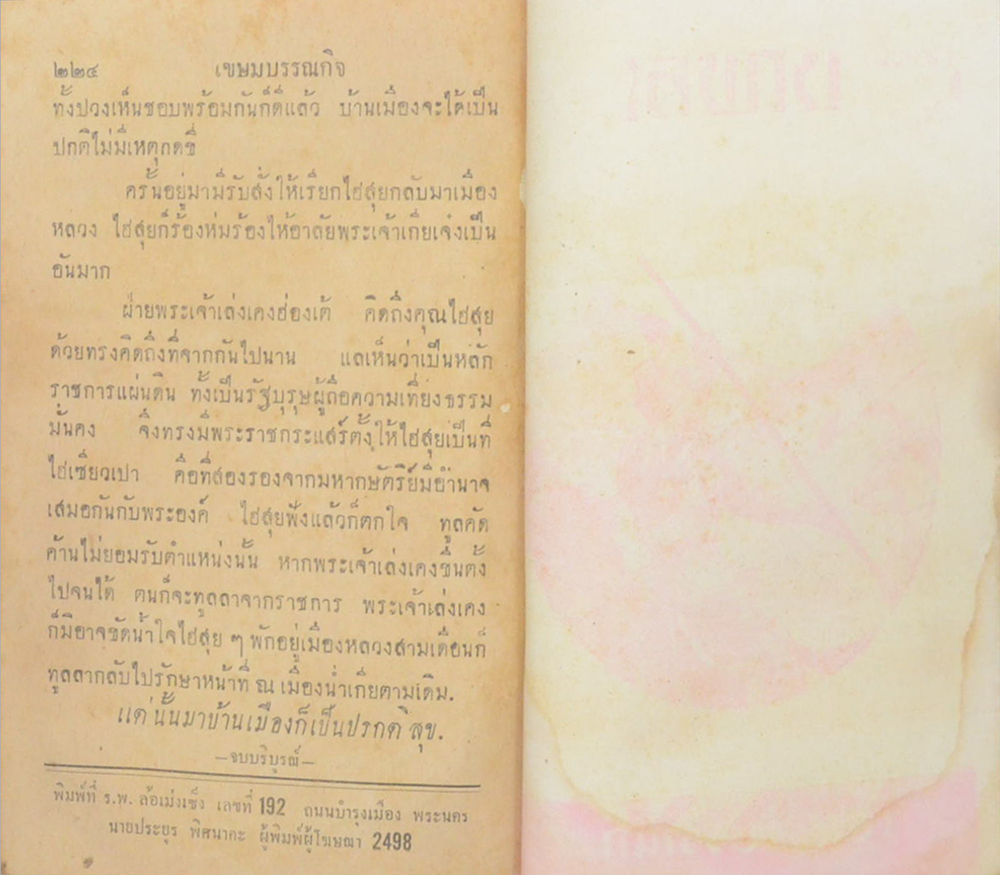 ๒๒๔ เขษมบรรณกิจ
ทั้งปวงเห็นชอบพร้อมกันก็ดีแล้ว บ้านเมืองจะได้เป็น
ปกติไม่มีเหตุกดขี่
ครั้นอยู่มามีรับสั่งให้เรียกไฮ่สุยกลับมาเมือง
หลวง ไฮ่สุยก็ร้องห่มร้องไห้อาลัยพระเจ้าเกียเจ๋งเป็น
อันมาก
ฝ่ายพระเจ้าเล่งเคงฮ่องเต้ คิดถึงคุณไฮ่สุย
ด้วยทรงคิดถึงที่จากกันไปนาน แลเห็นว่าเป็นหลัก
ราชการแผ่นดิน ทั้งเป็นรัฐบุรุษผู้ถือความเที่ยงธรรม
มั่นคง จึงทรงมีพระราชกระแสร์ตั้งให้ไฮ่สุยเป็นที่
ไฮ่เซียวเปา คือที่สองรองจากมหากษัตริย์มีอำนาจ
เสมอกันกับพระองค์ ไฮ่สุยฟังแล้วก็ตกใจ ทูลคัด
ค้านไม่ยอมรับตำแหน่งนั้น หากพระเจ้าเล่งเคงขืนตั้ง
ไปจนได้ ตนก็จะทูลลาจากราชการ พระเจ้าเล่งเคง
ก็มิอาจขัดน้ำใจไฮ่สุย ๆ พักอยู่เมืองหลวงสามเดือนก็
ทูลลากลับไปรักษาหน้าที่ ณ เมืองน่ำเกียตามเดิม.
แต่นั้นมาบ้านเมืองก็เป็นปรกติสุข.
—จบบริบูรณ์—
พิมพ์ที่ ร.พ. ล้อเม่งเซ็ง เลขที่ 192 ถนนบำรุงเมือง พระนคร
นายประยูร พิศนาคะ ผู้พิมพ์ผู้โฆษณา 2498